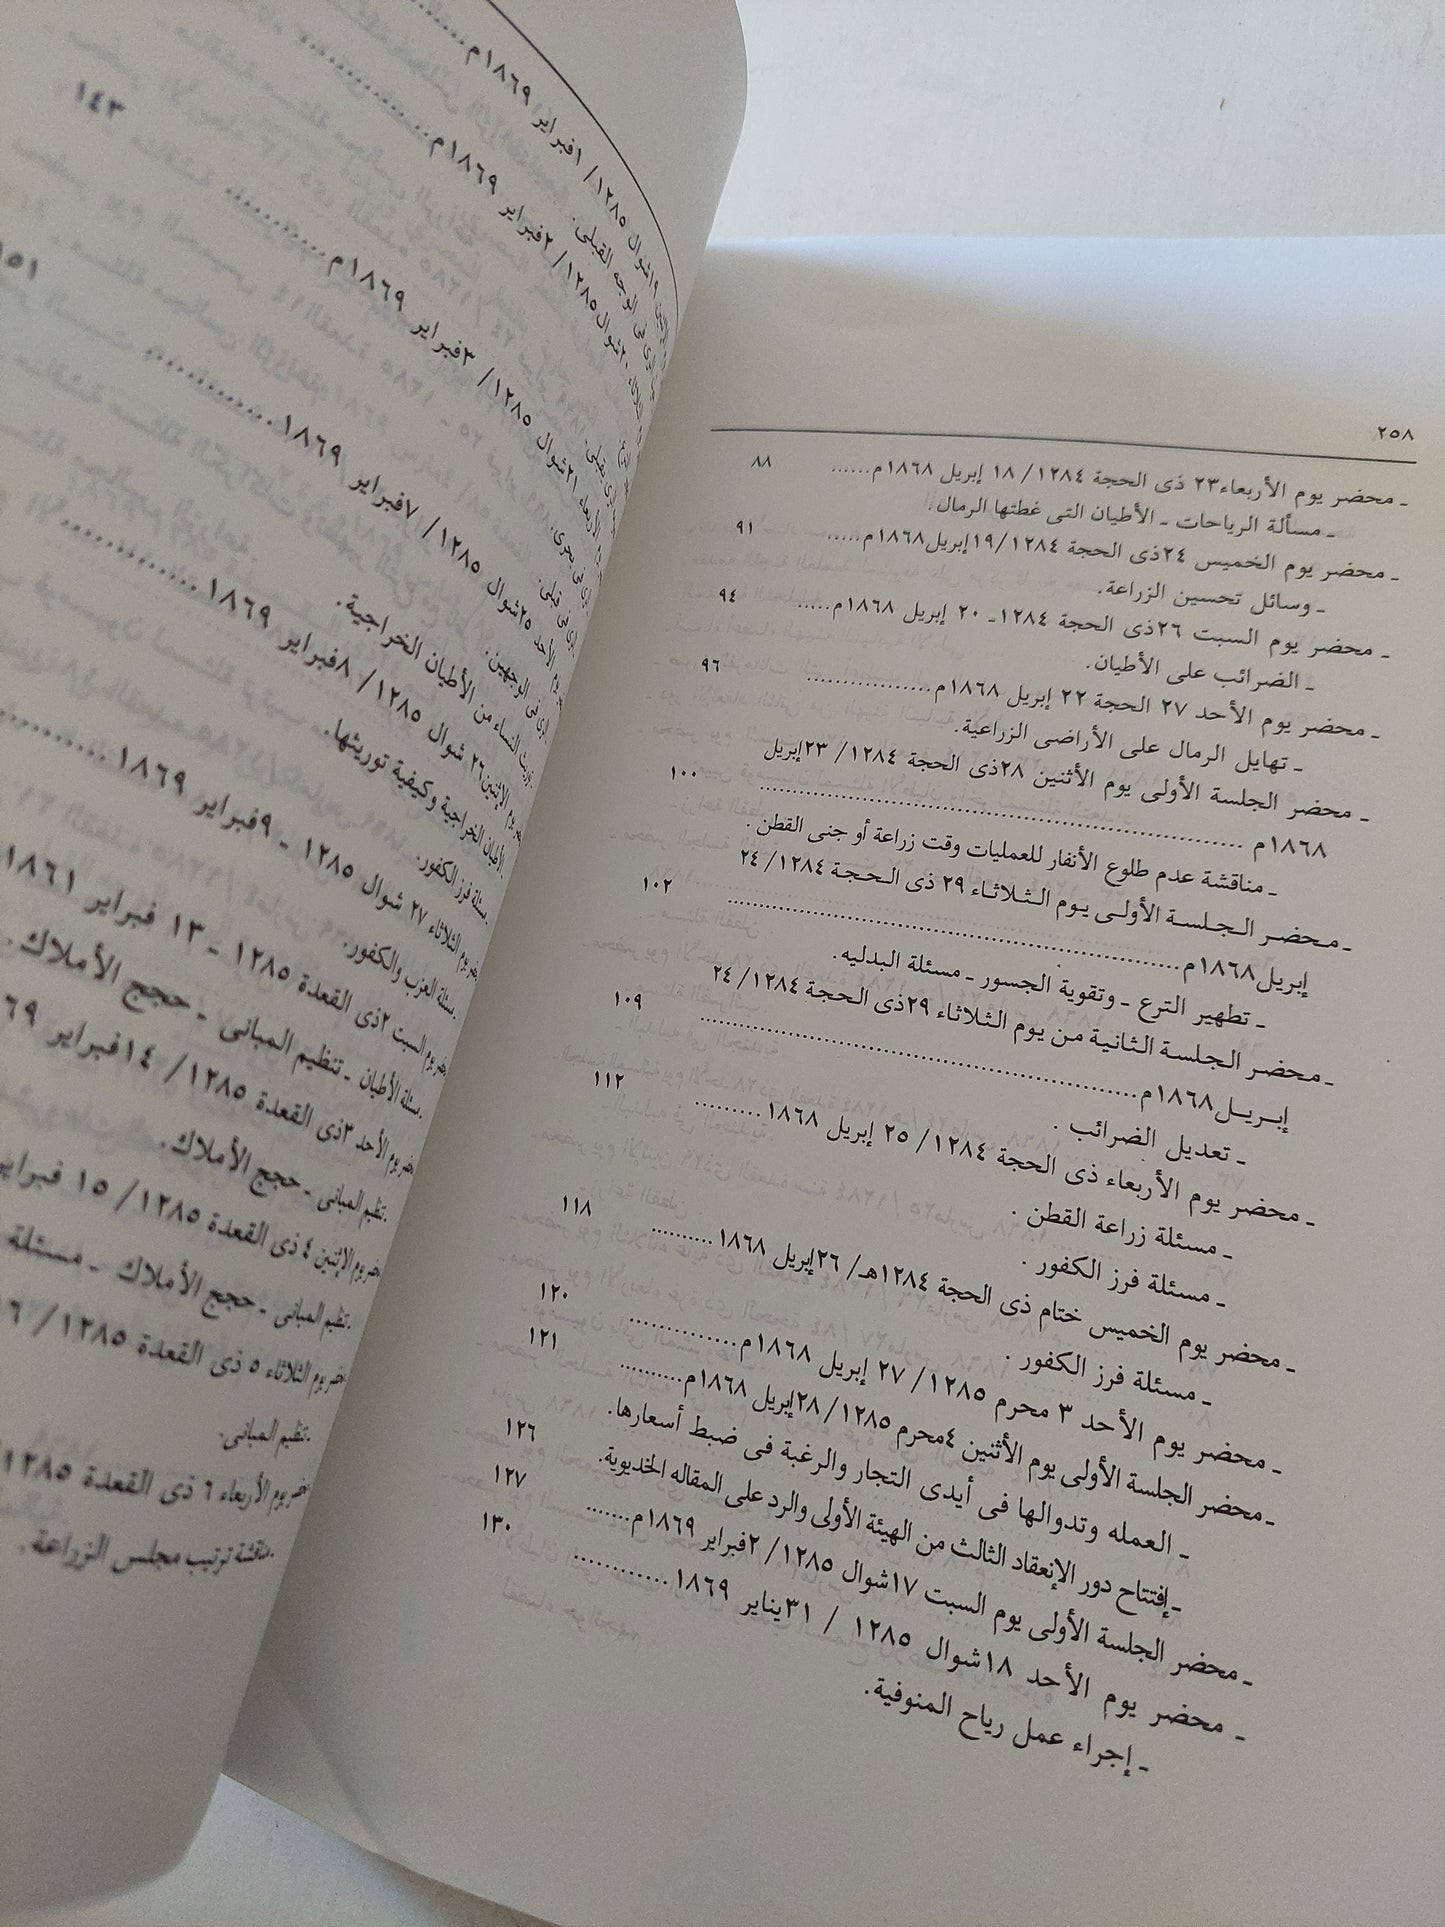 ٢٥٨
ـ محضر يوم الأربعاء٢٣ ذى الحجة ١٢٨٤/ ١٨ إبريل ١٨٦٨م...... ٨٨
ـ مسألة الرياحات ـ الأطيان التى غطتها الرمال.
ـ محضر يوم الخميس ٢٤ذى الحجة ١٢٨٤/١٩إبريل١٨٦٨م..... ٩١
ـ وسائل تحسين الزراعة.
ـ محضر يوم السبت ٢٦ذى الحجة ١٢٨٤ـ ٢٠ إبريل ١٨٦٨م..... ٩٤
ـ الضرائب على الأطيان.
ـ محضر يوم الأحد ٢٧ الحجة ٢٢ إبريل ١٨٦٨م................ ٩٦
ـ تهايل الرمال على الأراضى الزراعية.
ـ محضر الجلسة الأولى يوم الأثنين ٢٨ذى الحجة ١٢٨٤/ ٢٣إبريل
١٨٦٨م ............................................................ ١٠٠
ـ مناقشة عدم طلوع الأنفار للعمليات وقت زراعة أو جنى القطن .
ـ محضر الجلسة الأولى يوم الثلاثاء ٢٩ ذى الحجة ١٢٨٤/ ٢٤
إبريل١٨٦٨م............................................................ ١٠٢
ـ تطهير الترع ـ وتقوية الجسور ـ مسئلة البدليه.
ـ محضر الجلسة الثانية من يوم الثلاثاء ٢٩ذى الحجة ١٢٨٤/ ٢٤
إبريل١٨٦٨م............................................................ ١٠٩
ـ تعديل الضرائب .
ـ محضر يوم الأربعاء ذى الحجة ١٢٨٤/ ٢٥ إبريل ١٨٦٨ ......... ١١٢
ـ مسئلة زراعة القطن .
ـ مسئلة فرز الكفور .
ـ محضر يوم الخميس ختام ذى الحجة ١٢٨٤هـ/ ٢٦إبريل ١٨٦٨ .......... ١١٨
ـ مسئلة فرز الكفور .
ـ محضر يوم الأحد ٣ محرم ١٢٨٥/ ٢٧ إبريل ١٨٦٨م.............. ١٢٠
ـ محضر الجلسة الأولى يوم الأثنين ٤محرم ١٢٨٥/ ٢٨إبريل ١٨٦٨م.......... ١٢١
ـ العمله وتدوالها فى أيدى التجار والرغبة فى ضبط أسعارها.
ـ إفتتاح دور الإنعقاد الثالث من الهيئة الأولى والرد على المقاله الخديوية. ١٢٦
ـ محضر الجلسة الأولى يوم السبت ١٧شوال ١٢٨٥/ ٢فبراير ١٨٦٩م....... ١٢٧
ـ محضر يوم الأحد ١٨شوال ١٢٨٥ / ٣١يناير ١٨٦٩ ............ ١٣٠
ـ إجراء عمل رياح المنوفية.
١٩شوال ١٢٨٥/ ١فبراير ١٨٦٩م
فى الوجه القبلى.
٢٠شوال ١٢٨٥/ ٢فبراير ١٨٦٩م ١٤٣
قبلى.
الأربعاء ٢١شوال ١٢٨٥/ ٣فبراير ١٨٦٩م ١٥١
بحرى.
قبلى.
يوم الأحد ٢٥شوال ١٢٨٥/ ٧فبراير ١٨٦٩
فى الوجهين.
توريث النساء من الأطيان الخراجية.
يوم الإثنين٢٦ شوال ١٢٨٥/ ٨فبراير ١٨٦٩
الأطيان الخراجية وكيفية توريثها.
مسئلة فرز الكفور.
يوم الثلاثاء ٢٧ شوال ١٢٨٥ ـ ٩فبراير ١٨٦٩
مسئلة العزب والكفور.
يوم السبت ٢ذى القعدة ١٢٨٥ ـ ١٣ فبراير ١٨٦١
مسئلة الأطيان ـ تنظيم المبانى ـ حجج الأملاك.
يوم الأحد ٣ذى القعدة ١٢٨٥/ ١٤فبراير ٦٩
تنظيم المبانى ـ حجج الأملاك.
يوم الإثنين ٤ ذى القعدة ١٢٨٥/ ١٥ فبراير
تنظيم المبانى ـ حجج الأملاك ـ مسئلة
يوم الثلاثاء ٥ ذى القعدة ١٢٨٥/
تنظيم المبانى.
يوم الأربعاء ٦ ذى القعدة ١٢٨٥
مناقشة ترتيب مجلس الزراعة.